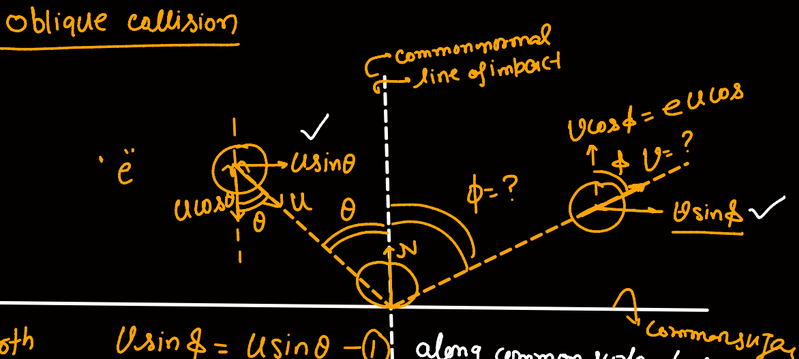 oblique callision
common normal
line of impact
'e'
usinθ
ucosθ
θ
u
θ
N
ϕ = ?
vcosϕ = eucos
ϕ
v = ?
vsinϕ
vsinϕ = usinθ - ①
along common